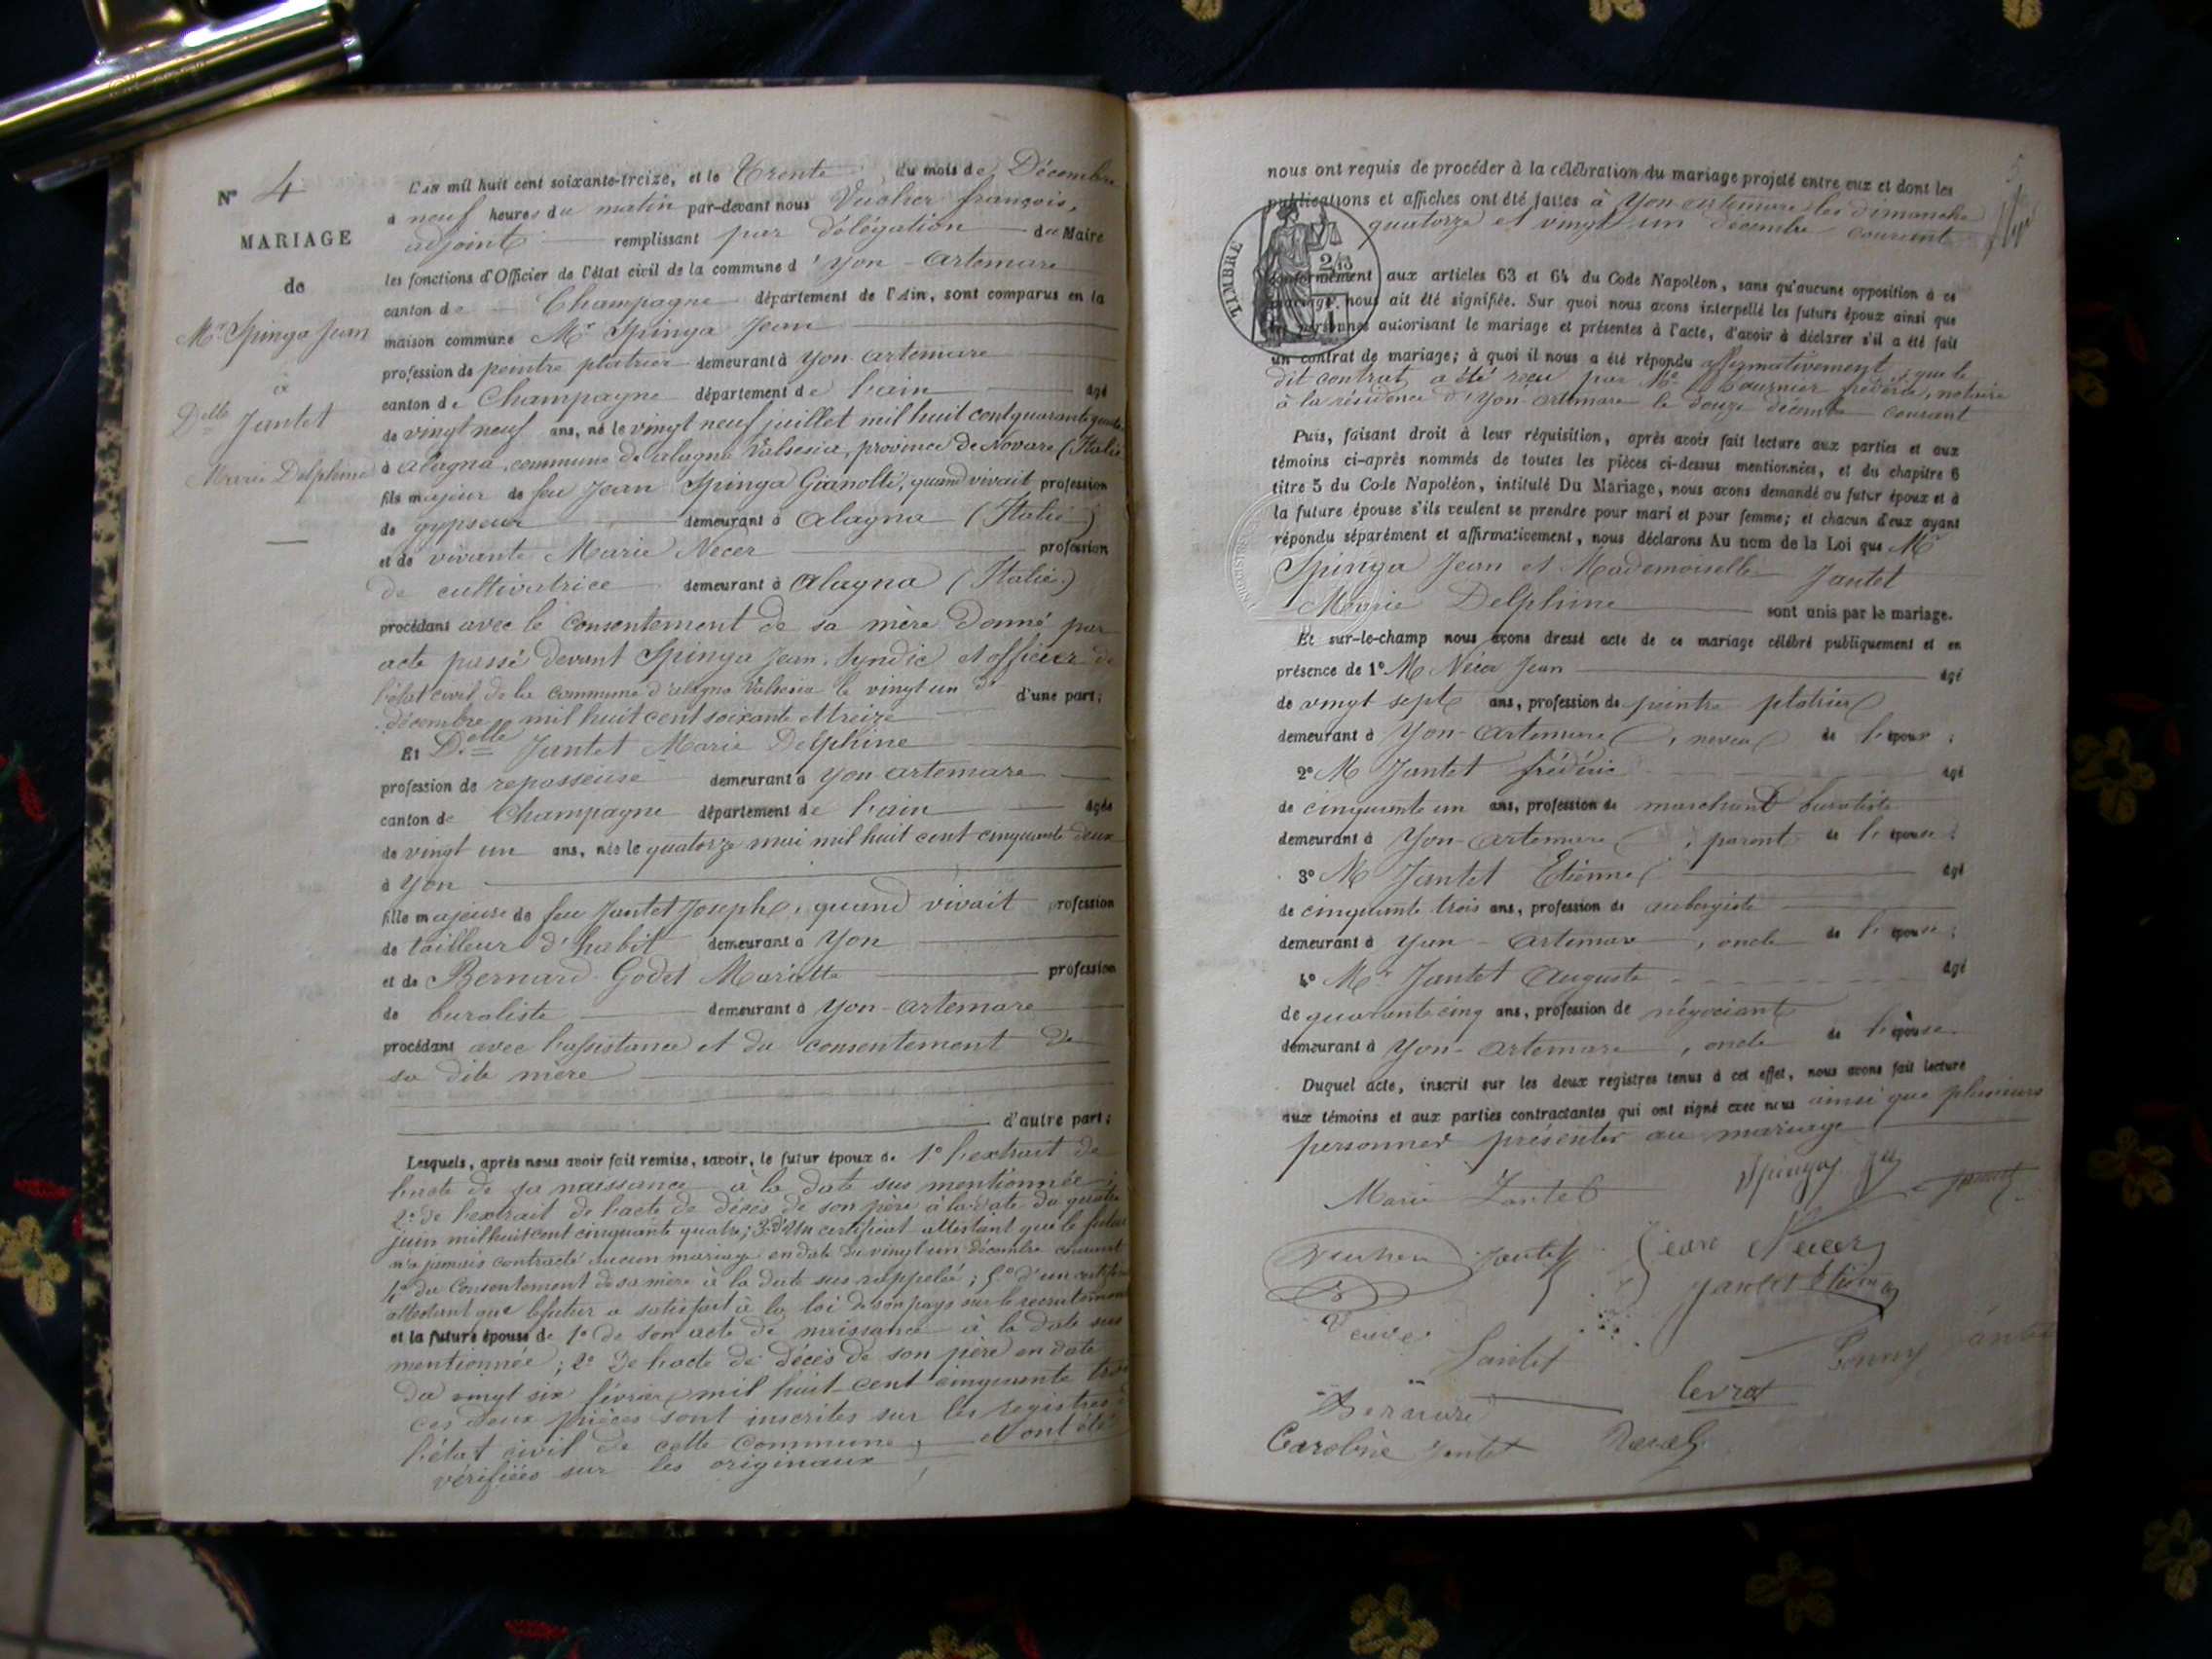 N° 4
MARIAGE
de
Mr Spinga Jean
et
Delle Jantet
Marie Delphine
L'an mil huit cent soixante-treize, et le Trente du mois de Décembre
à neuf heures du matin par-devant nous Vucher françois,
adjoint remplissant par délégation du Maire
les fonctions d'Officier de l'état civil de la commune d'Yon-Artemare
canton de Champagne département de l'Ain, sont comparus en la
maison commune Mr Spinga Jean
profession de peintre platrier demeurant à Yon-artemare
canton de Champagne département de l'ain âgé
de vingt neuf ans, né le vingt neuf juillet mil huit cent quarante quatre
à Alagna, commune de alagna Valsesia, province de Novare (Italie
fils majeur de feu Jean Spinga Gianolti, quand vivait profession
de gypseur demeurant à Alagna (Italie)
et de vivante Marie Necer profession
de cultivatrice demeurant à Alagna (Italie)
procédant avec le consentement de sa mère donné par
acte passé devant Spinga Jean, Syndic et officier de
l'état civil de la commune d'alagna Valsesia le vingt un dt d'une part;
décembre mil huit cent soixante et treize
Et Delle Jantet Marie Delphine
profession de repasseuse demeurant à Yon-artemare
canton de Champagne département de l'ain âgée
de vingt un ans, née le quatorze mai mil huit cent cinquante deux
à Yon
fille majeure de feu Jantet Joseph, quand vivait profession
de tailleur d'habit demeurant à Yon
et de Bernard-Godet Mariette profession
de buraliste demeurant à Yon-artemare
procédant avec l'assistance et du consentement de
sa dite mère
d'autre part;
Lesquels, après nous avoir fait remise, savoir, le futur époux de 1° l'extrait de
l'acte de sa naissance à la date sus mentionnée;
2° de l'extrait de l'acte de décès de son père à la date du quatre
juin mil huit cent cinquante quatre; 3° d'un certificat attestant que le futur
n'a jamais contracté aucun mariage en date du vingt un décembre courant
4° du consentement de sa mère à la date sus rappelée; 5° d'un certificat
attestant que le futur a satisfait à la loi de son pays sur le recrutement
et la future épouse de 1° de son acte de naissance à la date sus
mentionnée; 2° de l'acte de décès de son père en date
du vingt six février mil huit cent cinquante trois
ces deux pièces sont inscrites sur les registres de
l'état civil de cette commune, et ont été
vérifiées sur les originaux;
5
nous ont requis de procéder à la célébration du mariage projeté entre eux et dont les
publications et affiches ont été faites à Yon-artemare les dimanche
quatorze et vingt un décembre courant
TIMBRE
conformément aux articles 63 et 64 du Code Napoléon, sans qu'aucune opposition à ce
mariage nous ait été signifiée. Sur quoi nous avons interpellé les futurs époux ainsi que
les personnes autorisant le mariage et présentes à l'acte, d'avoir à déclarer s'il a été fait
un contrat de mariage; à quoi il nous a été répondu affirmativement, que le
dit contrat a été reçu par Me Tournier frédéric, notaire
à la résidence d'Yon-artemare le douze décembre courant
Puis, faisant droit à leur réquisition, après avoir fait lecture aux parties et aux
témoins ci-après nommés de toutes les pièces ci-dessus mentionnées, et du chapitre 6
titre 5 du Code Napoléon, intitulé Du Mariage, nous avons demandé au futur époux et à
la future épouse s'ils veulent se prendre pour mari et pour femme; et chacun d'eux ayant
répondu séparément et affirmativement, nous déclarons Au nom de la Loi que Mr
Spinga Jean et Mademoiselle Jantet
Marie Delphine sont unis par le mariage.
Et sur-le-champ nous avons dressé acte de ce mariage célébré publiquement et en
présence de 1° M Nécer Jean âgé
de vingt sept ans, profession de peintre platrier
demeurant à Yon-Artemare, neveu de l'époux;
2° M Jantet frédéric âgé
de cinquante un ans, profession de marchand buraliste
demeurant à Yon-artemare, parent de l'épouse;
3° M Jantet Etienne âgé
de cinquante trois ans, profession de aubergiste
demeurant à Yon-Artemare, oncle de l'épouse;
4° Mr Jantet Auguste âgé
de quarante cinq ans, profession de négociant
demeurant à Yon-artemare, oncle de l'épouse
Duquel acte, inscrit sur les deux registres tenus à cet effet, nous avons fait lecture
aux témoins et aux parties contractantes qui ont signé avec nous ainsi que plusieurs
personnes présentes au mariage
Marie Jantet Spinga Jantet
Vucher Jantet Jean Necer
Jantet Etienne
Veuve Jantet
Bernard Levrat
Caroline Jantet